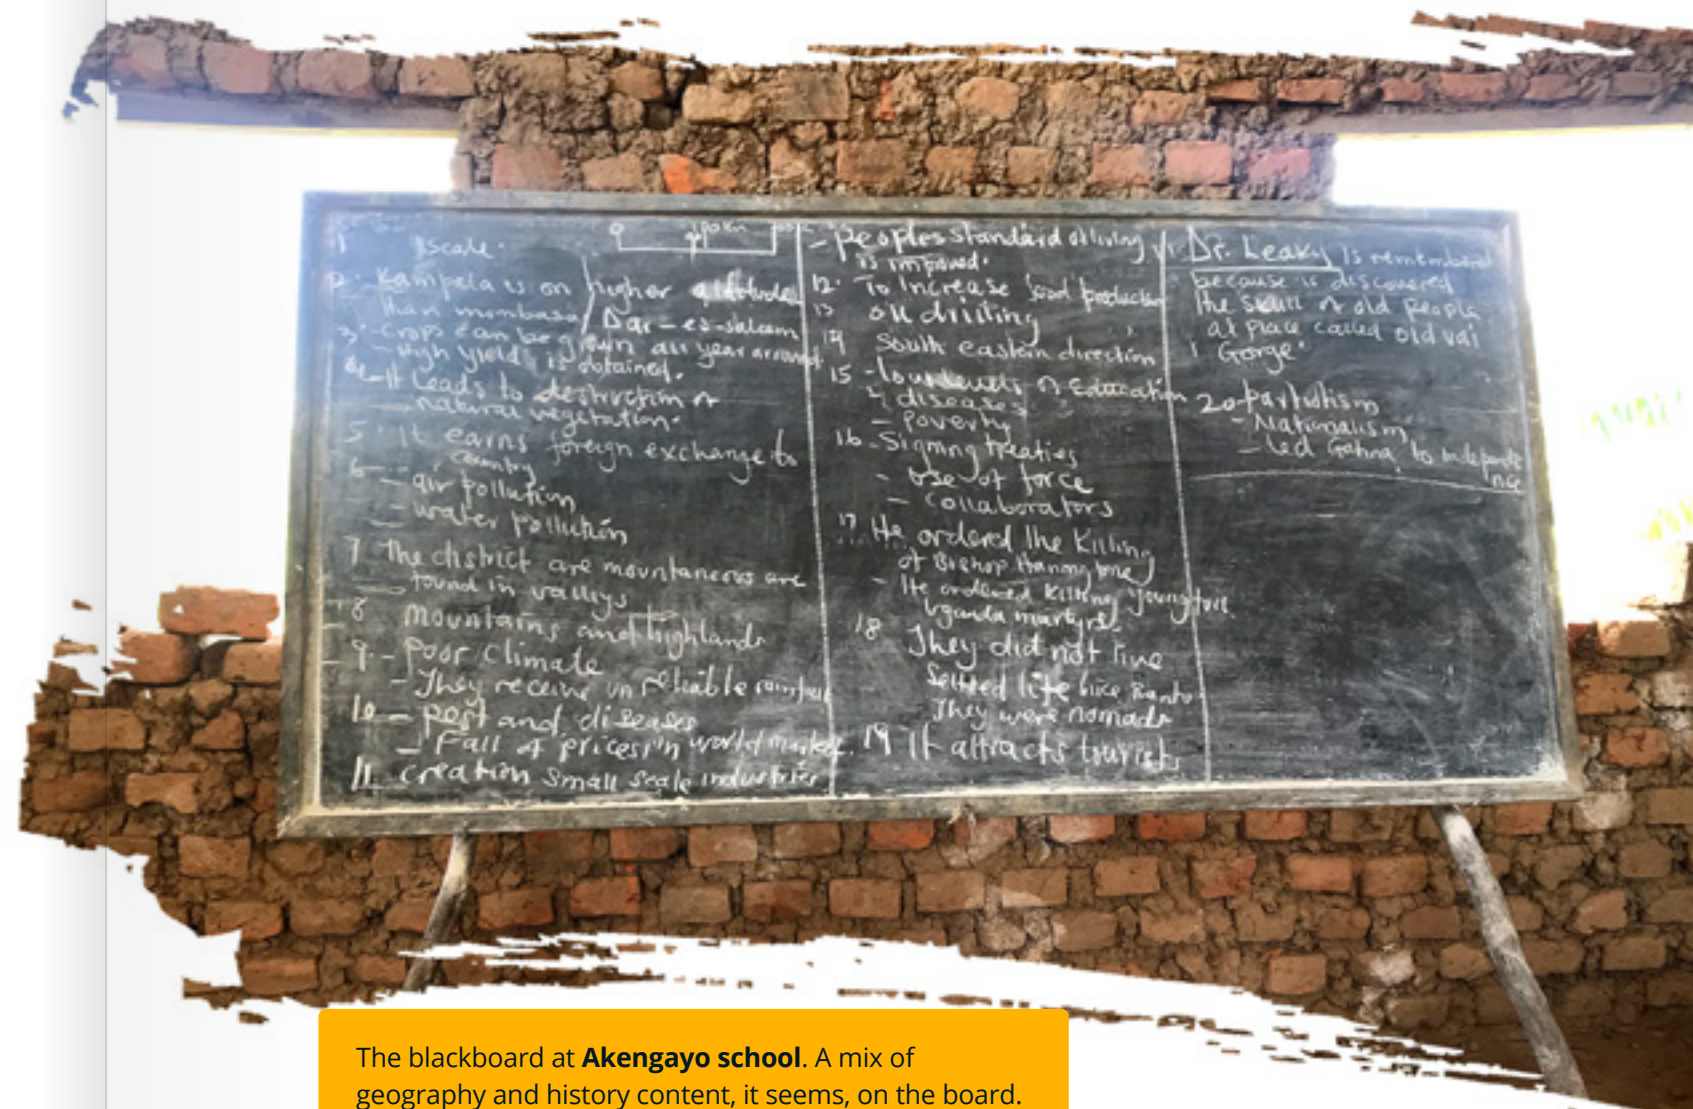 1 scale.
2. Kampala is on / higher altitude
than mombasa / Dar-es-salaam
3. - Crops can be grown all year around
- High yield is obtained.
4 - It Leads to destruction of
natural vegetation.
5. It earns foreign exchange to
country
6 - air pollution
- water pollution
7 The district are mountaneous are
found in valleys
8 Mountains and highlands
9. - Poor climate
- They receive un reliable rainfall
10 - pest and diseases
- Fall of prices in world market.
11 creation small scale industries
- Peoples standard of living
is improved.
12. To Increase food production
13 oil drilling
14 South eastern direction
15 - low levels of Education
- diseases
- Poverty
16 - Signing treaties
- Use of force
- Collaborators
17 He ordered the Killing
of Bishop Hannington
- He ordered killing young
Uganda martyrs.
18 They did not live
settled life like Bantu
They were nomads
19 It attracts tourists
Dr. Leaky is remembered
because is discovered
the skull of old people
at place called old vai
Gorge.
20 -
- Nationalism
- Led to independe
nce
The blackboard at Akengayo school. A mix of
geography and history content, it seems, on the board.